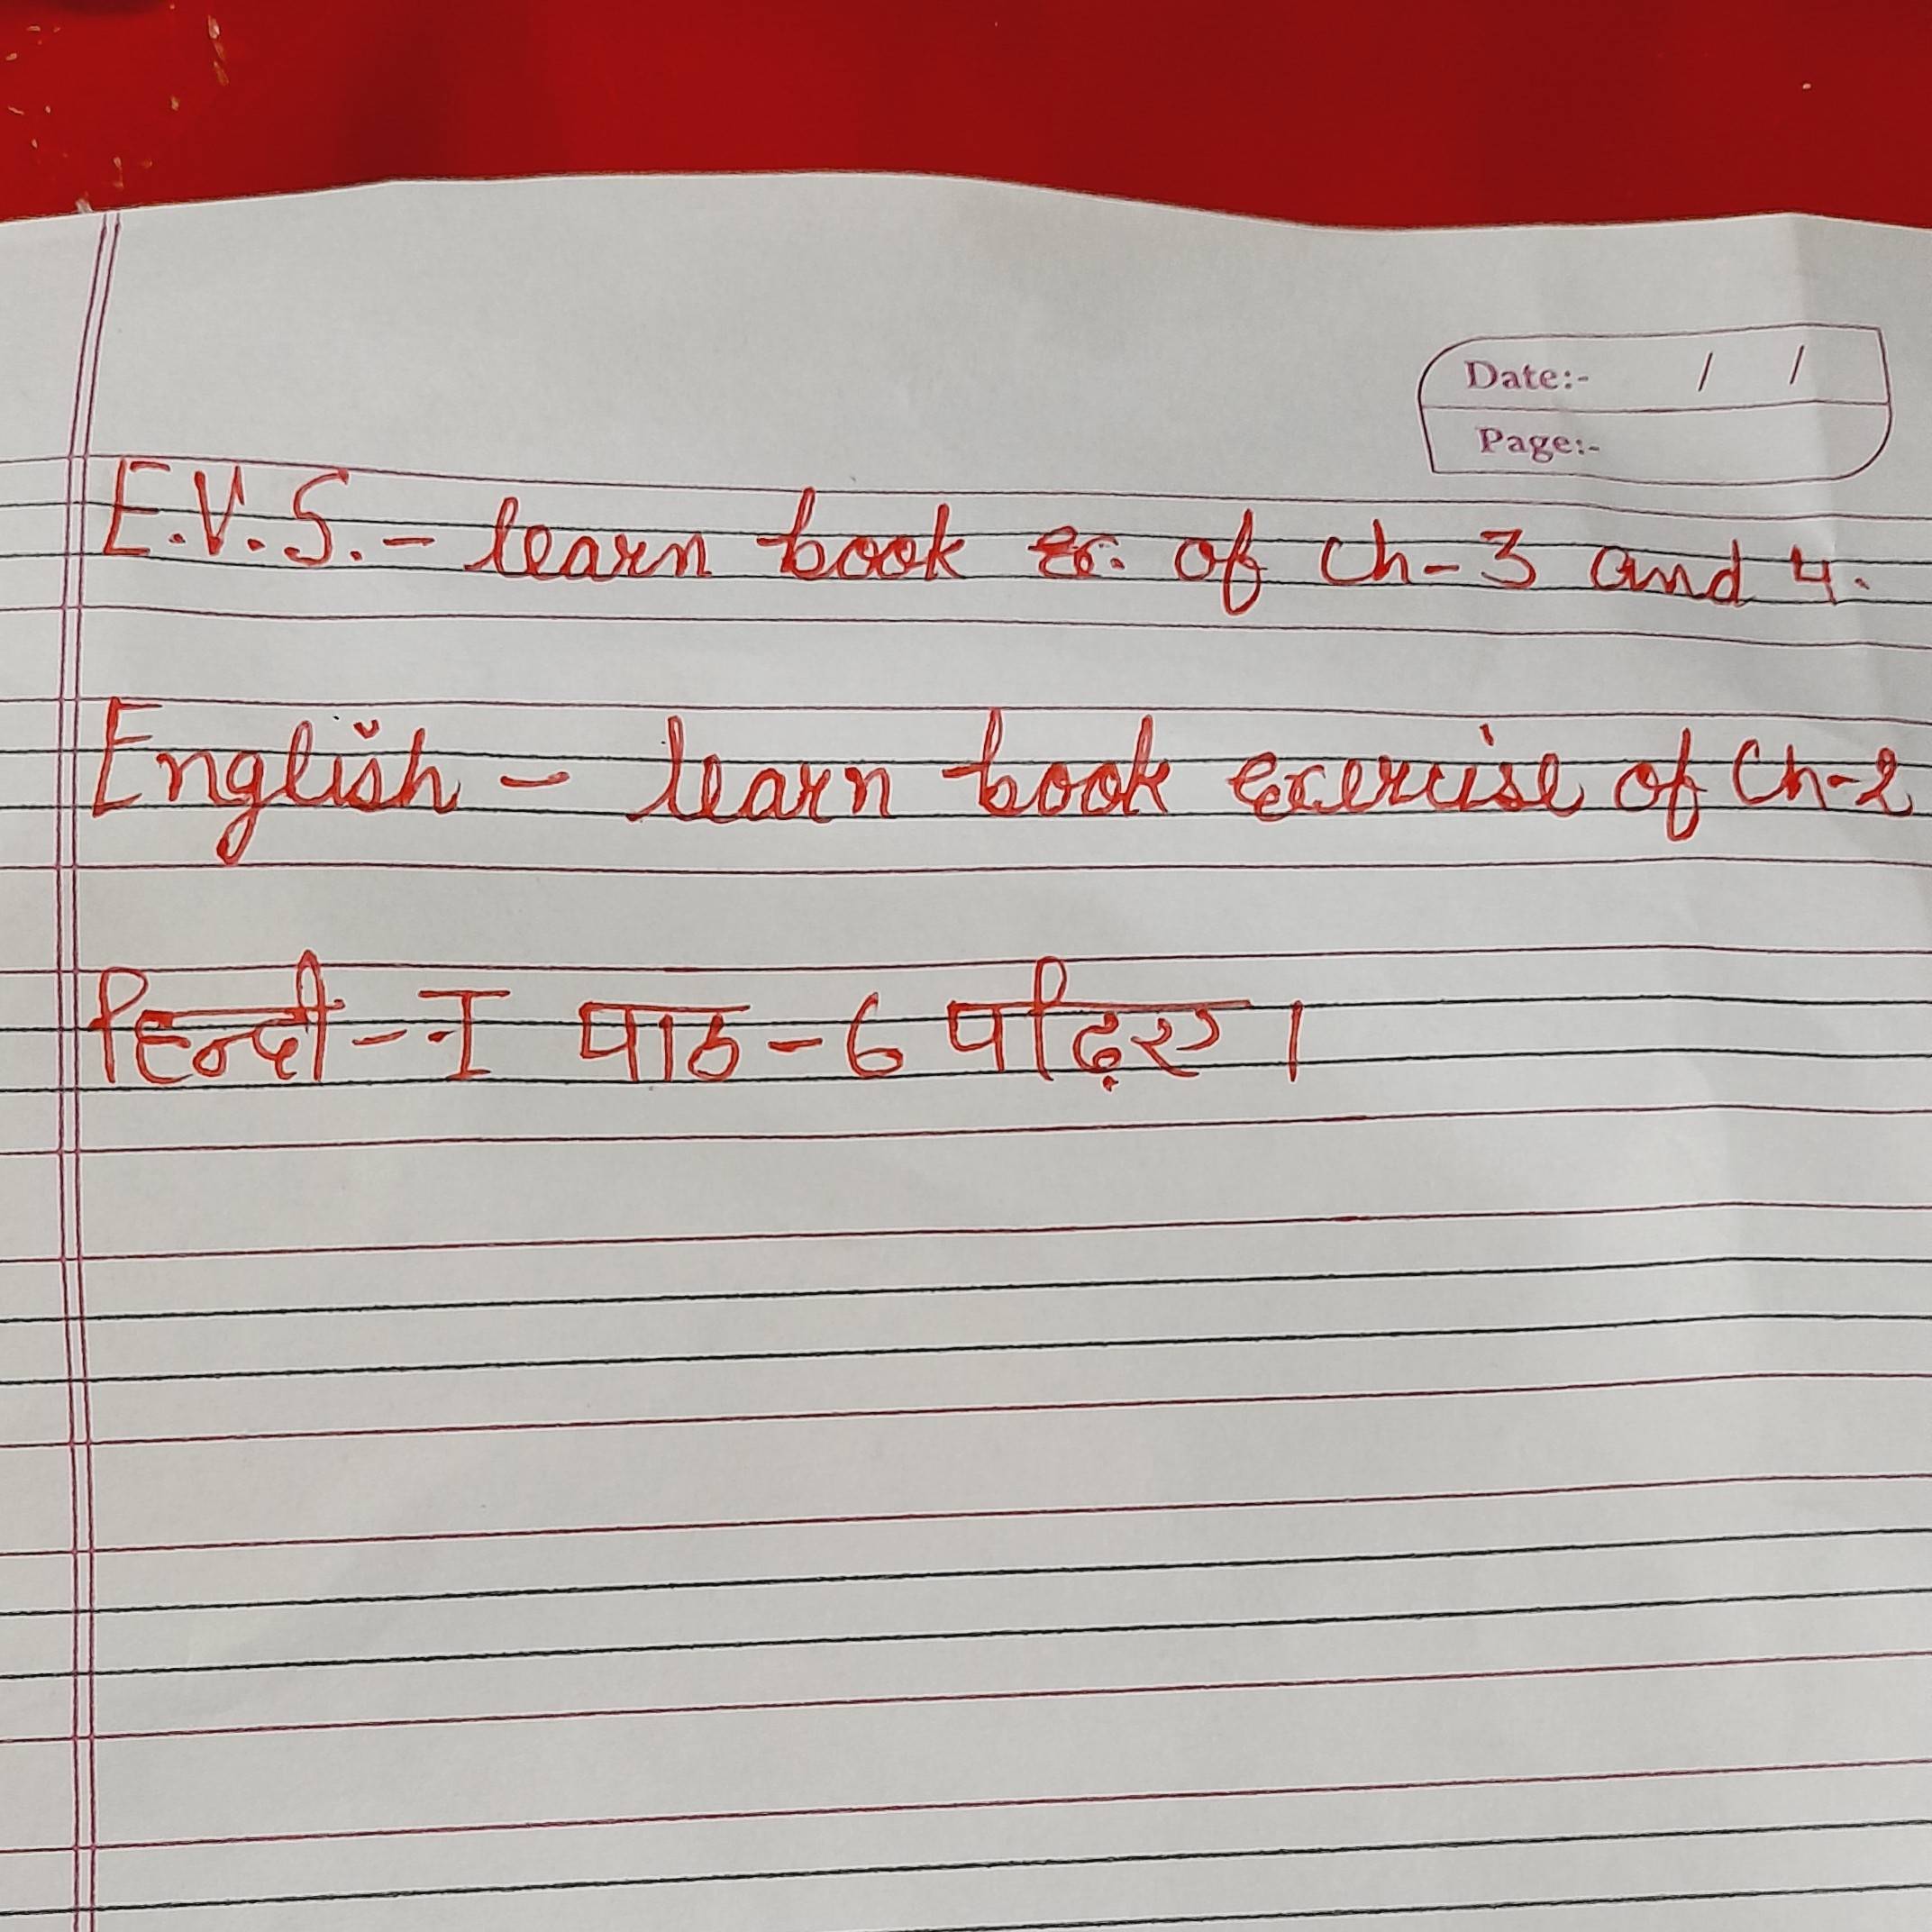 Date:- / /
Page:-
E.V.S. - learn book ex. of Ch-3 and 4.
English - learn book exercise of Ch-2
हिन्दी - I पाठ - 6 पढ़िए।